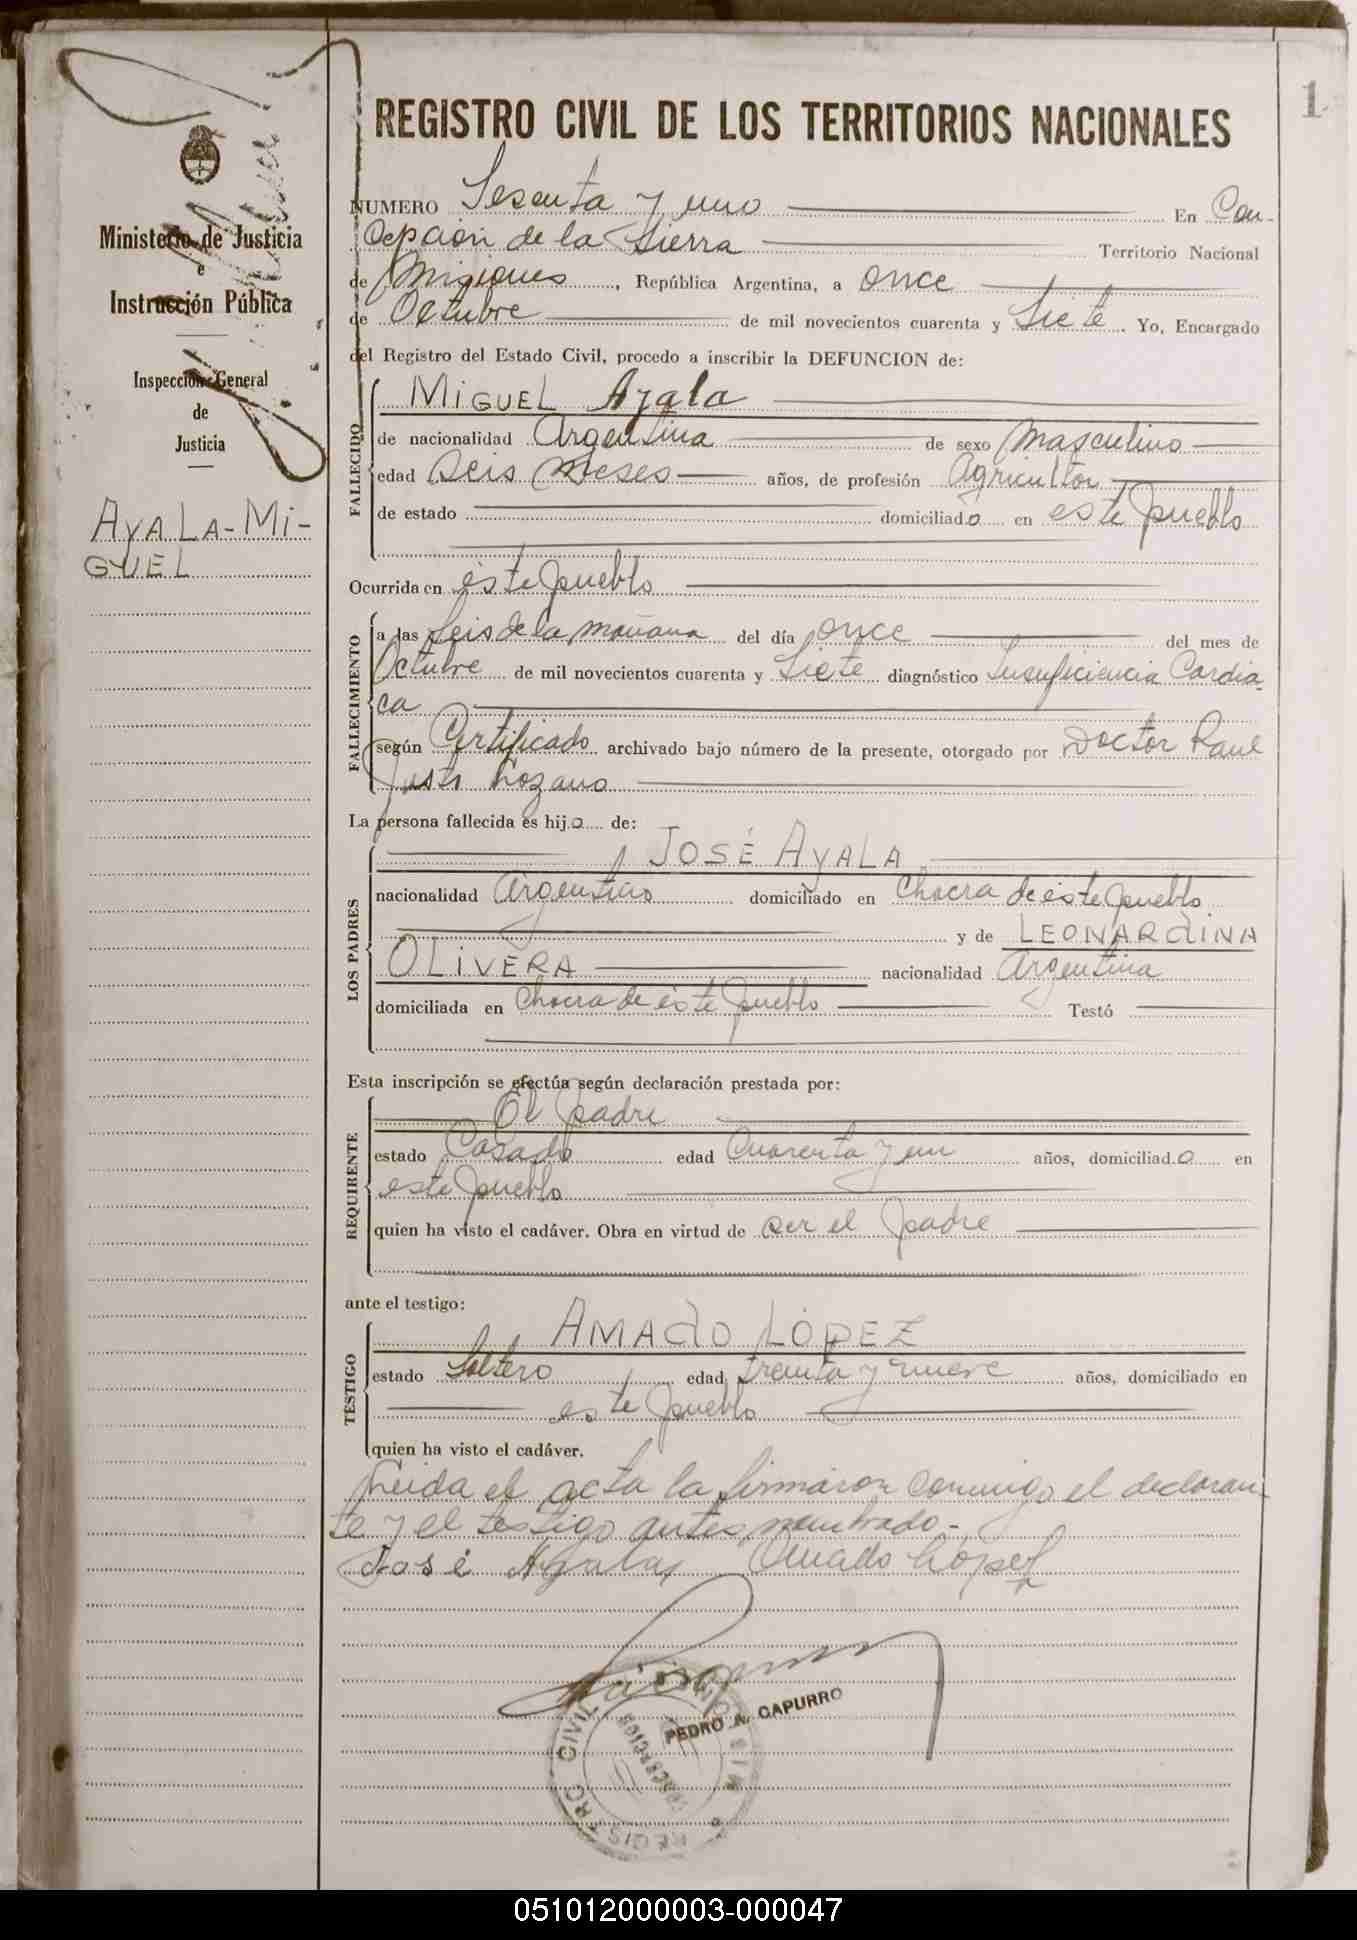 1
REGISTRO CIVIL DE LOS TERRITORIOS NACIONALES
Ministerio de Justicia
e
Instrucción Pública
Inspección General
de
Justicia
AYALA-MI-
GUEL
NUMERO Sesenta y uno En Con-
cepción de la Sierra Territorio Nacional
de Misiones, República Argentina, a once
de Octubre de mil novecientos cuarenta y Siete. Yo, Encargado
del Registro del Estado Civil, procedo a inscribir la DEFUNCION de:
FALLECIDO
MIGUEL Ayala
de nacionalidad Argentina de sexo Masculino
edad seis meses años, de profesión Agricultor
de estado domiciliado en este pueblo
Ocurrida en éste pueblo
FALLECIMIENTO
a las seis de la mañana del día once del mes de
Octubre de mil novecientos cuarenta y Siete diagnóstico Insuficiencia Cardia-
ca
según Certificado archivado bajo número de la presente, otorgado por Doctor Raul
Justo Lozano
La persona fallecida es hijo de:
LOS PADRES
JOSÉ AYALA
nacionalidad Argentino domiciliado en Chacra de éste pueblo
y de LEONARDINA
OLIVERA nacionalidad Argentina
domiciliada en Chacra de éste pueblo Testó
Esta inscripción se efectúa según declaración prestada por:
REQUIRENTE
El padre
estado Casado edad Cuarenta y un años, domiciliado en
este pueblo
quien ha visto el cadáver. Obra en virtud de ser el padre
ante el testigo:
TESTIGO
AMADO LOPEZ
estado Soltero edad treinta y nueve años, domiciliado en
este pueblo
quien ha visto el cadáver.
Leida el acta la firmaron conmigo el declaran-
te y el testigo antes nombrado-
José Ayala Amado López
PEDRO A. CAPURRO
REGISTRO CIVIL
051012000003-000047